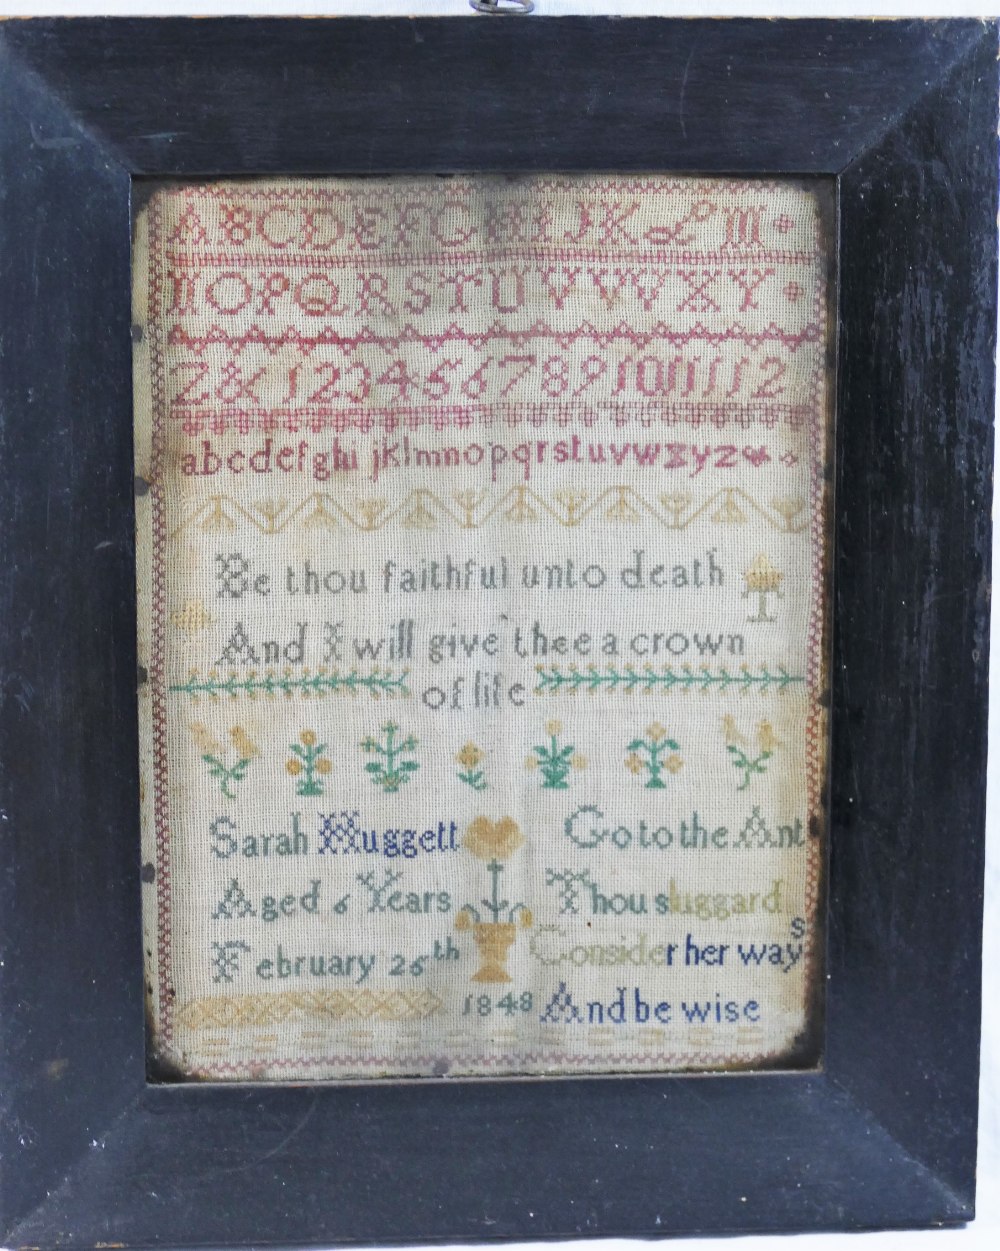 ABCDEFGHIJKLM
NOPQRSTUVWXY
Z&123456789101112
abcdefghijklmnopqrstuvwxyz
Be thou faithful unto death
And I will give thee a crown
of life
Sarah Huggett
Aged 6 Years
February 26th
1848
Go to the Ant
Thou sluggard
Consider her ways
And be wise